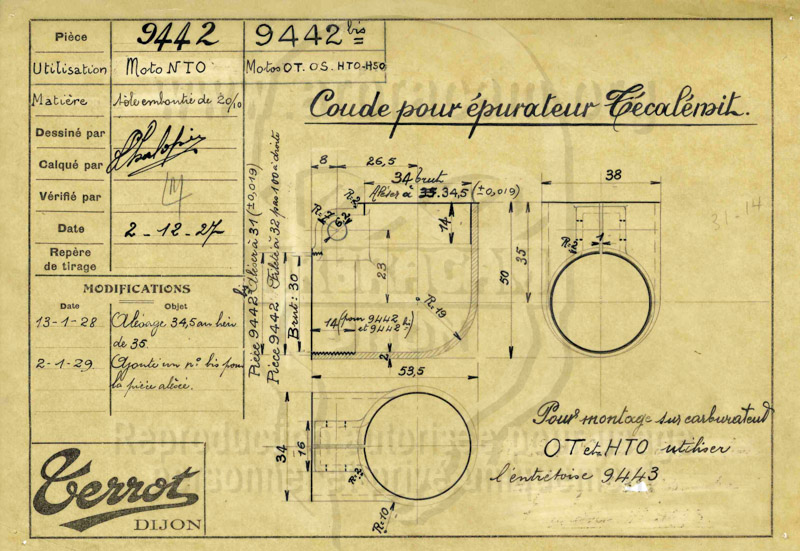 Pièce 9442 9442 bis
Utilisation Moto NTO Motos OT. OS. HTO-HSO
Matière tôle emboutie de 20/10
Dessiné par
Calqué par
Vérifié par
Date 2-12-27
Repère
de tirage
MODIFICATIONS
Date Objet
13-1-28 Alésage 34,5 au lieu
de 35.
2-1-29. Ajouté un n° bis pour
la pièce alésée.
Terrot
DIJON
Coude pour épurateur Técalémit.
8
26,5
34 brut
Aléser à 35. 34,5 (±0,019)
R.2
14
23
R.19
14 (pour 9442
et 9442 bis)
2
53,5
Pièce 9442 bis Aléser à 31 (±0,019)
Pièce 9442. Filetée à 32 pas 100 à droite
Brut: 30
50
35
38
R.2
1
34
16
R.2
R.10
31-14
Pour montage sur carburateur
OT et HTO utiliser
l'entretoise 9443